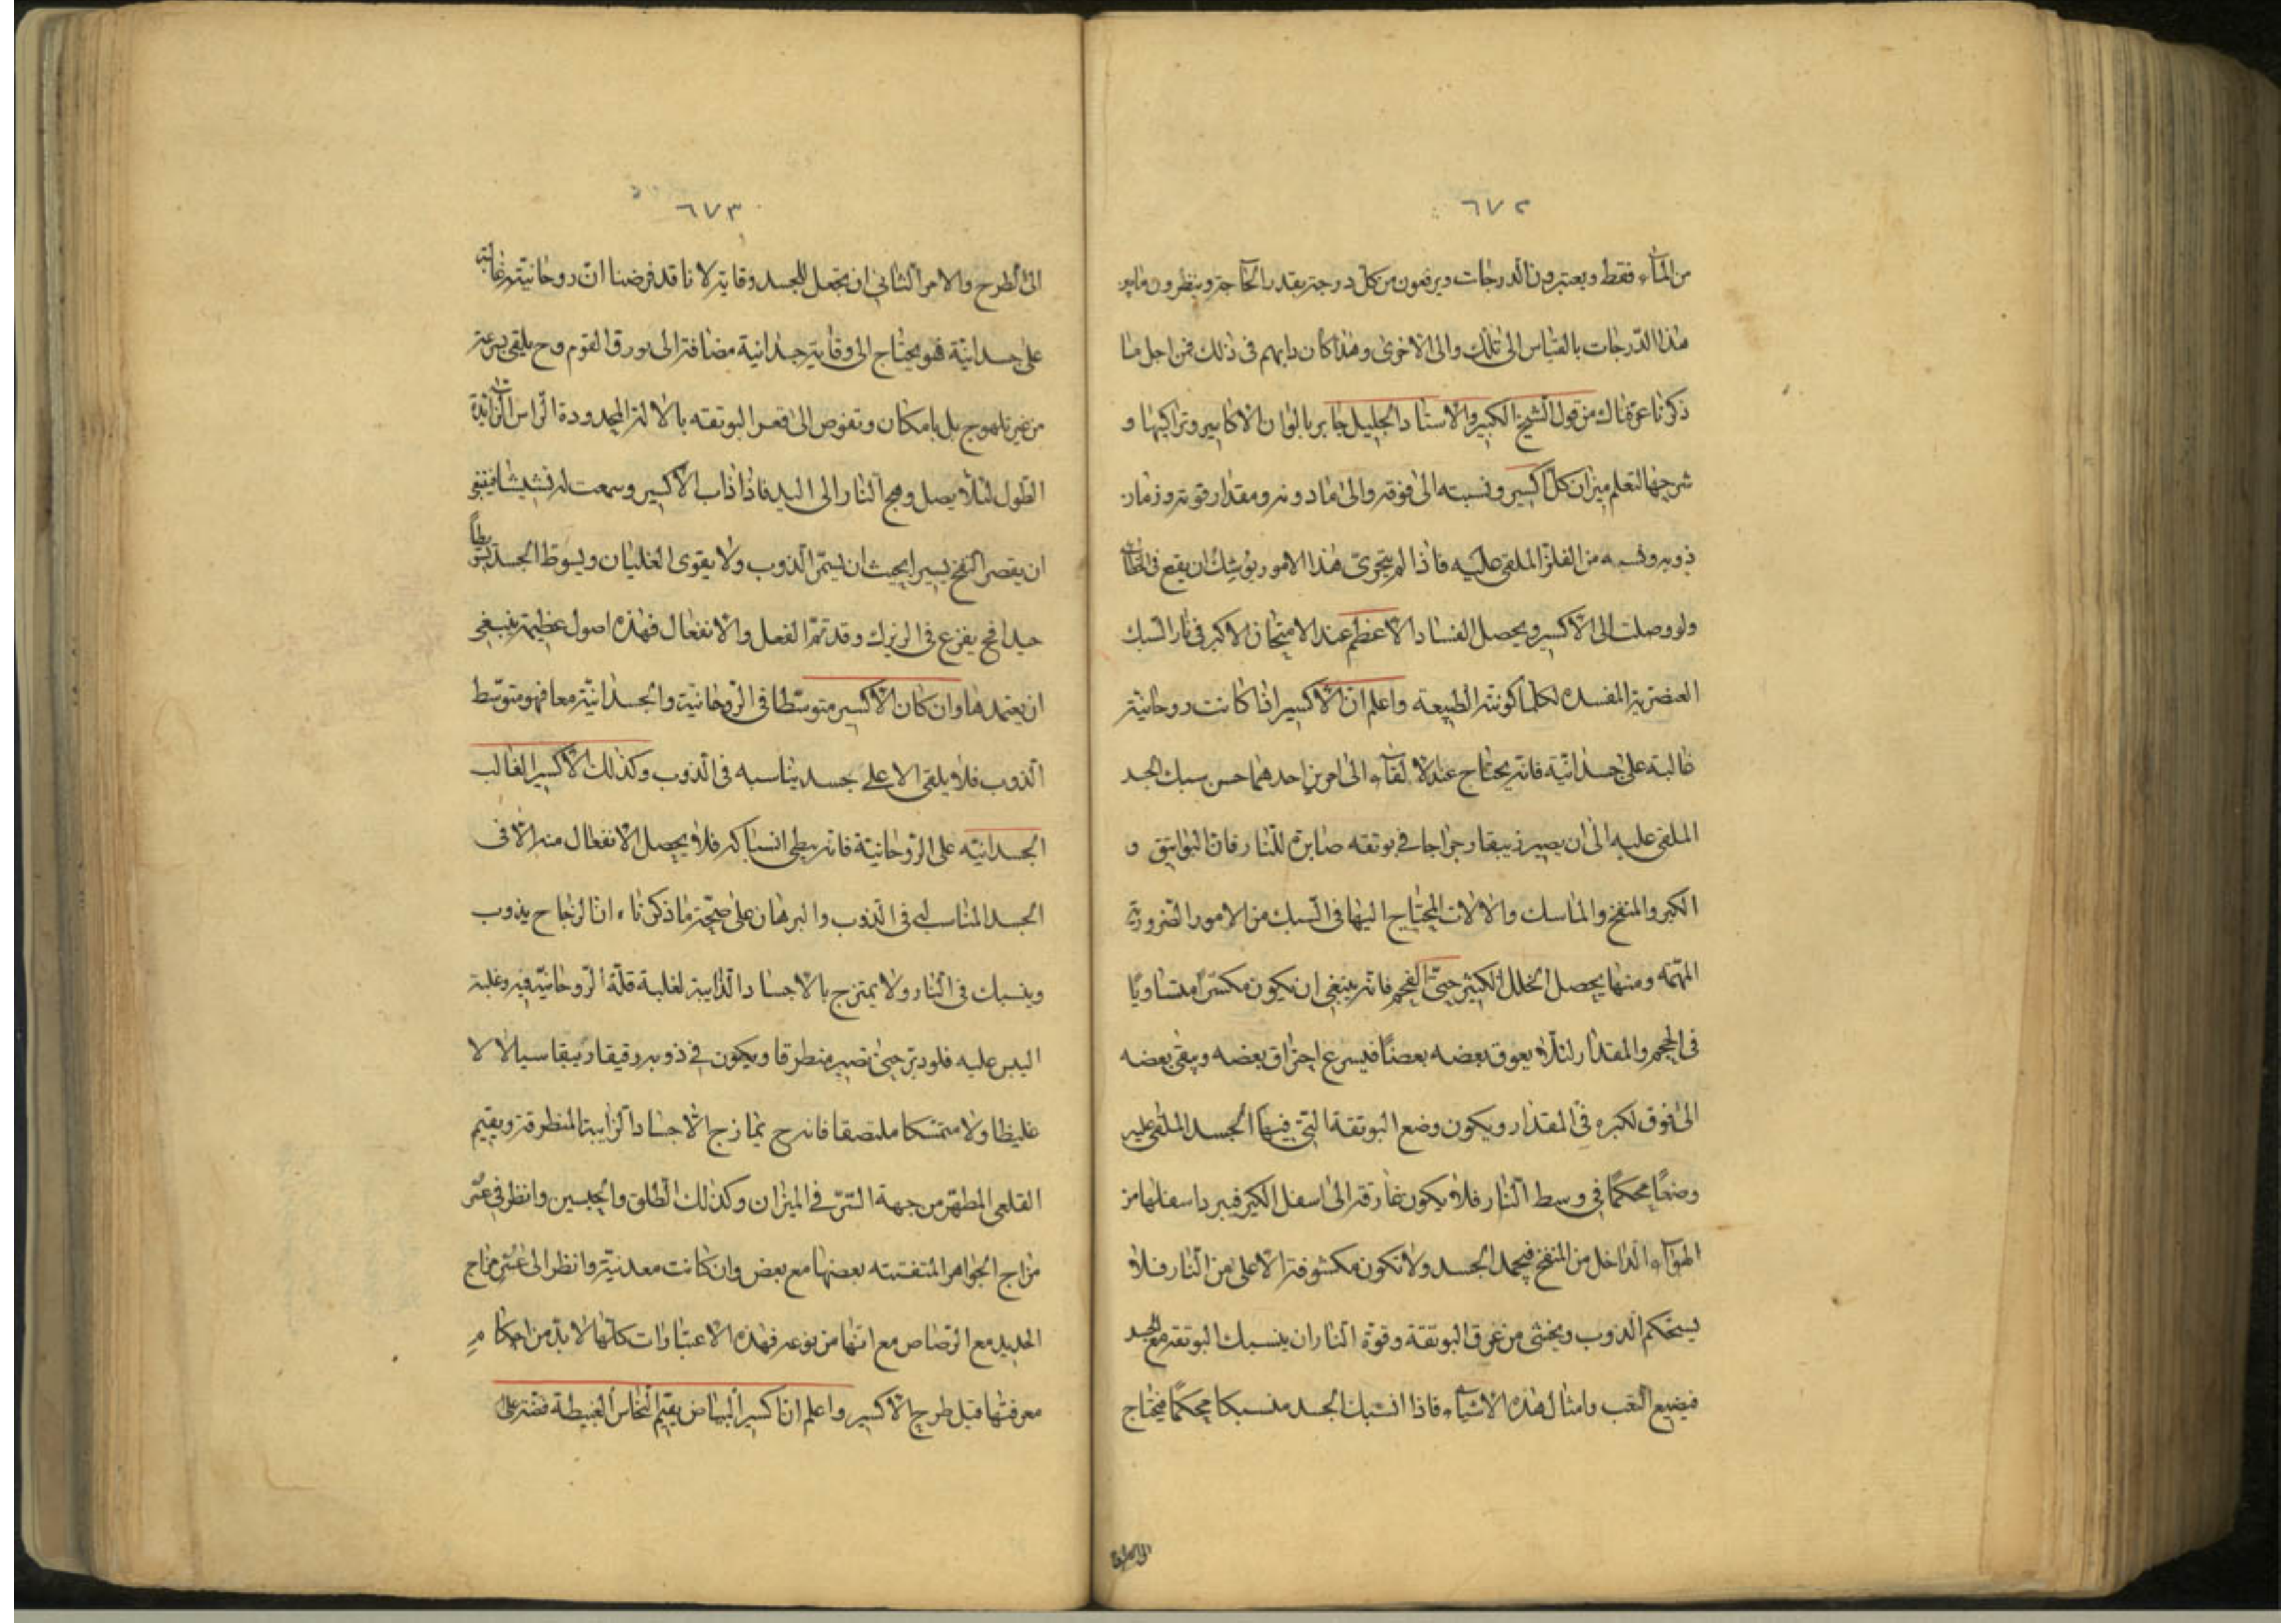 ٦٧٢
من المآء فقط ويعتبرون الدرجات ويرفعون من كل درجة بقدر الحاجة وينظرون
هذا الدرجات بالقياس الى تلك والى الاخرى وهذا كان دابهم فى ذلك فمن اجل هذا
ذكرنا عرفناك من قول الشيخ الكبير والاستاد الجليل جابر بالوان الاكاسير وتراكيبها و
شرحها لتعلم ميزان كل اكسير ونسبته الى فوقه والى مادونه ومقدار قوته وزمان
ذوبه وقسمه من الفلز الملقى عليه فاذا لم يتحرى هذا الامور يوشك ان يقع فى الخطاء
ولو وصلت الى الاكسير ويحصل الفساد الاعظم عند الامتحان الاكبر فى نار السبك
العنصرية المفسده لكلما كونته الطبيعه واعلم ان الاكسير اذا كانت روحانيته
غالبة على جسدانيته فانه يحتاج عند الالقآء الى امرين احدهما حسن سبك الجسد
الملقى عليه الى ان يصير زيبقا رجراجا فى بوتقه صابرة للنار فان البواتيق و
الكير والمنفخ والماسك والالات المحتاج اليها فى السبك من الامور الضرورية
المهمه ومنها يحصل الخلل الكثير حتى الفحم فانه ينبغى ان يكون مكسرا متساويا
فى الحجم والمقدار لئلا يعوق بعضه بعضا فيسرع احتراق بعضه ويبقى بعضه
الى فوق لكبره فى المقدار ويكون وضع البوتقة التى فيها الجسد الملقى عليه
وضعا محكما فى وسط النار فلا يكون غارقة الى اسفل الكير فيبرد اسفلها من
الهوآء الداخل من المنفخ فيجمد الجسد ولا تكون مكشوفة الاعلى من النار فلا
يستحكم الذوب ويخشى من غرق البوتقة وقوة النار ان ينسبك البوتقه مع الجسد
فيضيع التعب وامثال هذه الاشيآء فاذا انسبك الجسد منسبكا محكما فيحتاج
٦٧٣
الى الطرح والامر الثانى ان يجعل للجسد وقاية لانا قد فرضنا ان روحانيته غالبة
على جسدانيته فهو يحتاج الى وقاية جسدانية مضافة الى بورق القوم وح يلقى بسرعة
من غير تلهوج بل بامكان وتغوص الى قعر البوتقه بالالة المحدودة الراس الزائدة
الطول لئلا يصل وهج النار الى اليد فاذا ذاب الاكسير وسمعت له نشيشا فينبغى
ان يقصر النفخ يسيرا بحيث ان يستمر الذوب ولا يقوى الغليان ويسوط الجسد
جيدا فح يفرغ فى الريزك وقد تم الفعل والانفعال فهذه اصول عظيمة ينبغى
ان يعتمدها وان كان الاكسير متوسطا فى الروحانية والجسدانية معا فهو متوسط
الذوب فلا يلقى الا على جسد يناسبه فى الذوب وكذلك الاكسير الغالب
الجسدانيه على الروحانية فانه بطى انسباكه فلا يحصل الانفعال منه الا فى
الجسد المناسب له فى الذوب والبرهان على صحة ما ذكرناه ان الزجاج يذوب
وينسبك فى النار ولا يمتزج بالاجساد الذايبة لغلبة قلة الروحانية فيه وغلبة
اليبس عليه فلو دبر حتى تصير منطرقا ويكون فى ذوبه رقيقا زيبقا سيالا لا
غليظا ولا متمسكا ملتصقا فانه ح يمازج الاجساد الذايبة المنطرقة ويقيم
القلعى المطهر من جهة السر فى الميزان وكذلك الطلق والجبسين وانظر فى عسر
مزاج الجواهر المتفتته بعضها مع بعض وان كانت معدنية وانظر الى عسر مزاج
الحديد مع الرصاص مع انها من نوعه فهذه الاعتبارات كلها لا بد من احكام
معرفتها قبل طرح الاكسير واعلم ان اكسير البياض يقيم النحاس الغبيطة فضة على